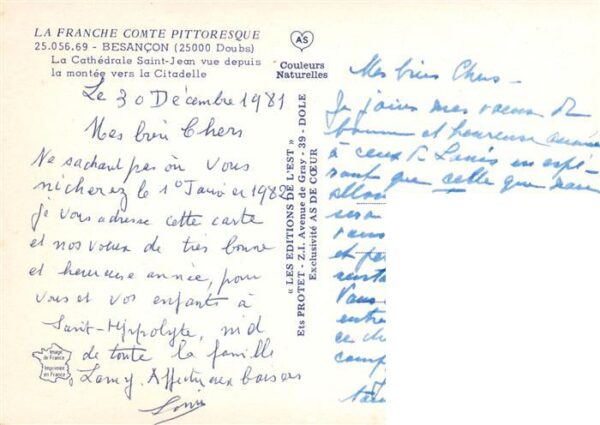 LA FRANCHE COMTE PITTORESQUE
25.056.69 - BESANÇON (25000 Doubs)
La Cathédrale Saint-Jean vue depuis
la montée vers la Citadelle
AS
Couleurs
Naturelles
Le 30 Décembre 1981
Mes bien Chers
Ne sachant pas où vous
nicherez le 1er Janvier 1982
je vous adresse cette carte
et nos voeux de très bonne
et heureuse année, pour
vous et vos enfants à
Saint-Hippolyte, nid
de toute la famille
Lamy. Affectueux baisers
Louis
Image
de France
Imprimée
en France
« LES EDITIONS DE L'EST »
Ets PROTET - Z.I. Avenue de Gray - 39 - DOLE
Exclusivité AS DE CŒUR
Mes biens Chers -
Je joins mes voeux de
bonne et heureuse année
à ceux de Louis en espé-
rant que celle que nous
allons
sera
vous
et
Vous
entre
ce